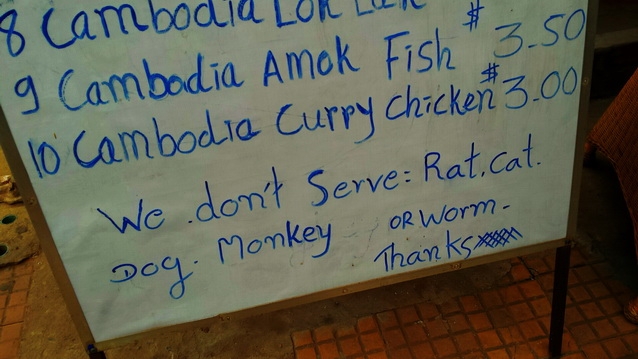 8 Cambodia Lok Lak
9 Cambodia Amok Fish $3.50
10 Cambodia Curry chicken $3.00
We don't Serve: Rat. Cat.
Dog. Monkey OR Worm-
Thanks